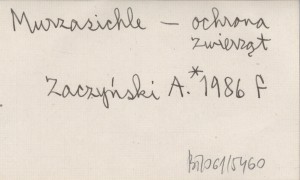 Murzasichle – ochrona
zwierząt
Zaczyński A.*1986 F
BN/061/5460